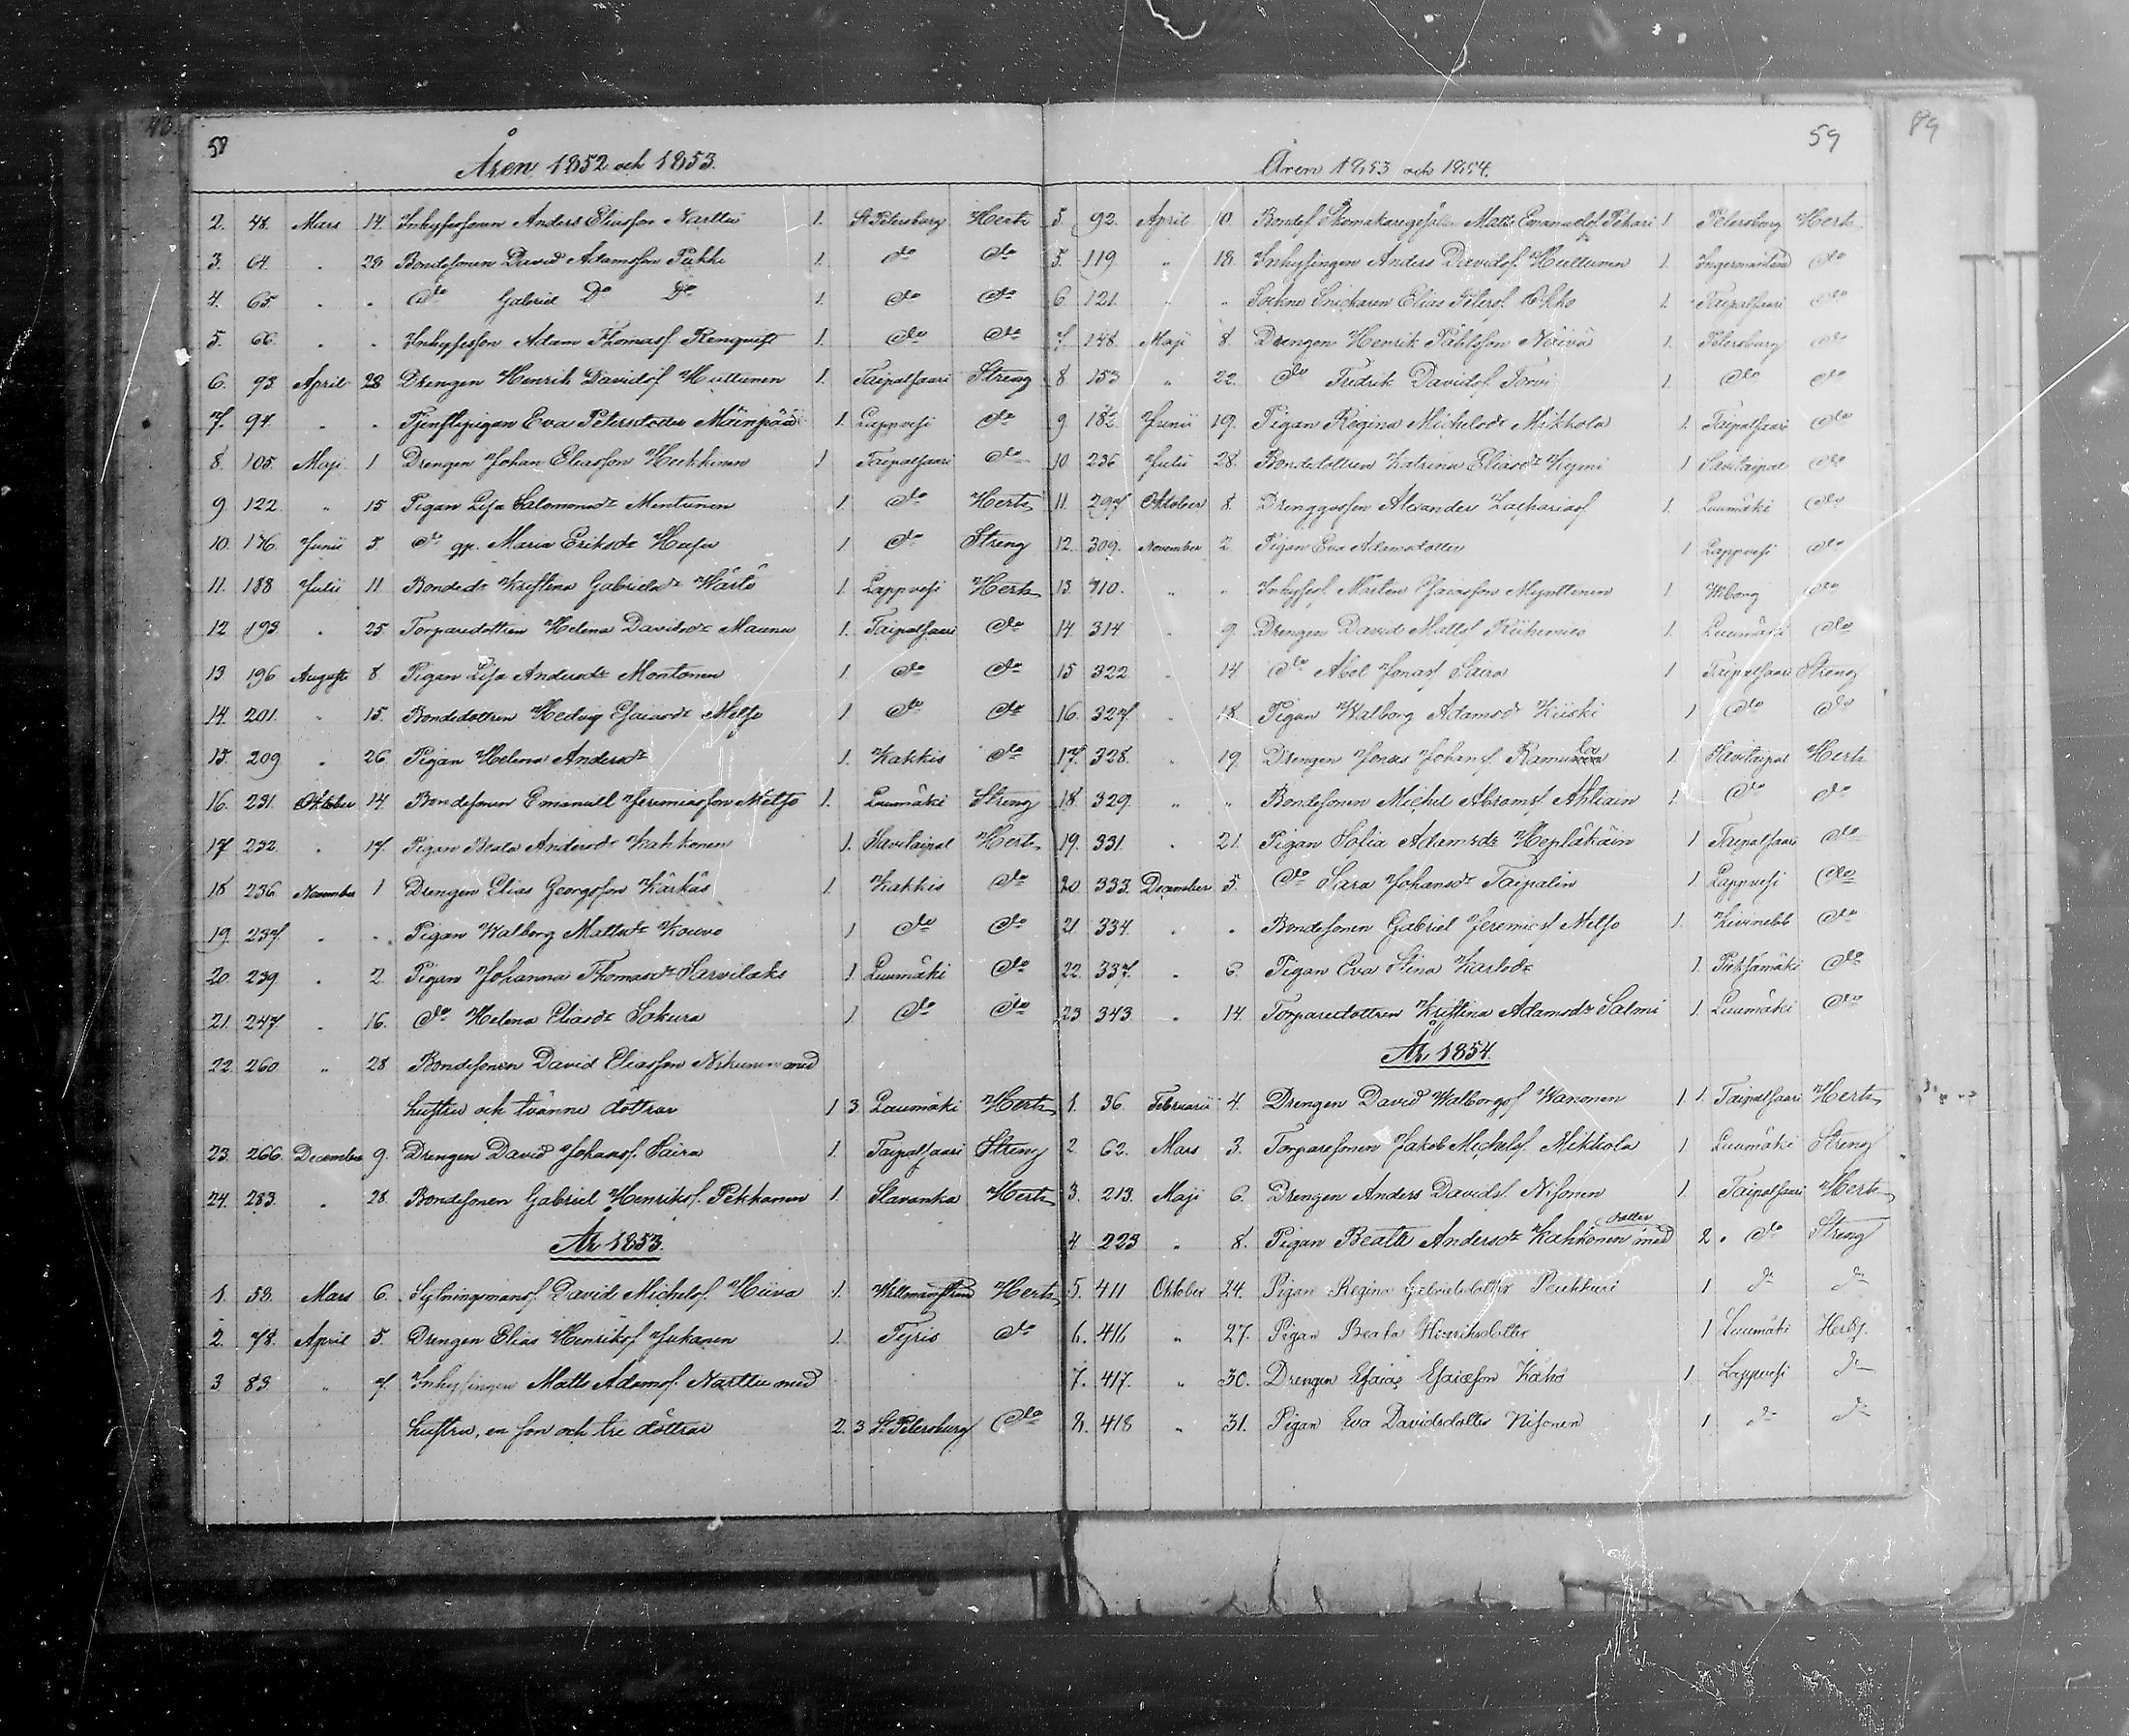 58
Åren 1852 och 1853.
2. 48. Mars 14. Inhysessonen Anders Eliasson Narttu 1. St Petersburg Hertz
3. 64. . 28 Bondesonen David Adamsson Pukki 1. do do
4. 65. . . do Gabriel Do Do 1. do do
5. 66. . . Inhyseson Adam Thomass. Renquist 1. do do
6. 93 April 28 Drengen Henrik Davidsf. Huttunen 1. Taipalsaari Streng
7. 94. . . Eva Petersdotter 1. Lappvesi do
8. 105. Maji 1 Drengen Johan Eliasson 1 Taipalsaari do
9 122. " 15 Pigan Lisa Salomonsdr Mentunen 1. do Hertz
10. 176. Junii 3. do gp. Maria Eriksdr 1 do Streng
11. 188 Julii 11. Bondedr Kristina Gabrielsdr 1 Lappvesi Hertz
12 193. . 25. Torparedottren Helena Davidsdr Maunu 1. Taipalsaari do
13 196 Augusti 8. Pigan Lisa Andersdr Montonen 1 do do
14. 201. " 15. Bondedottren Hedvig Esaiasdr Melso 1 do do
15. 209 . 26 Pigan Helena Andersdr 1. Kakkis do
16. 231. Oktober 14. Bondesonen Emanuell Jeremiasson Melso 1. Luumäki Streng
17 232. . 17. Pigan Beata Andersdr Kahkonen 1. Savitaipal Hertz
18 236. November 1 Drengen Elias Georgsson Kärkäs 1. Kakkis do
19. 237. . . Pigan Walborg Mattsdr Kouvo 1 do do
20. 239. . 2. Pigan Johanna Thomasdr Sarvilaks 1 Luumäki do
21. 247 . 16. do Helena Eliasdr Sokura 1. do do
22. 260 " 28 Bondesonen David Eliasson Nikunen med
hustru och tvänne döttrar 1 3 Luumäki Hertz
23. 266. December 9. Drengen David Johanss. Saira 1. Taipalsaari Streng
24. 283. . 28. Bondesonen Gabriel Henrikss. Pekkanen 1. Slavanka Hertz
År 1853.
1. 53. Mars 6. David Michelss. Hiiva 1. Willmanstrand Hertz
2. 78. April 5. Drengen Elias Henrikss. Juhanen 1. Tyris do
3 83 " 7. Inhysingen Matts Adamss. Narttu med
hustru, en son och tre döttrar 2. 3 St. Petersburg do
59
89
Åren 1853 och 1854.
5. 92. April 10. Bondes. Matts Emanuelss. Pekari 1 Petersburg Hertz
5. 119 " 18. Inhysingen Anders Davidss. Huttunen 1. Ingermanland do
6. 121. " " Sockne Snickaren Elias Peterss. Okko 1. Taipalsaari do
7. 148. Maji 8. Drengen Henrik Påhlsson Näivä 1. Petersburg do
8. 153 " 22. do Fredrik Davidss. Torvi 1. do do
9. 182. Junii 19. Pigan Regina Michelsdr Mikkola 1. Taipalsaari do
10. 236 Julii 28. Bondedottren Katrina Eliasdr Kymi 1 Savitaipal do
11. 297 Oktober 8. Drenggossen Alexander Zachariass. 1. Luumäki do
12. 309. November 2. Pigan Eva Adamsdotter 1 Lappvesi do
13. 410. " " Inhysess. Mårten Esaiasson Mynttinen 1 Wiborg do
14. 314 . 9. Drengen David Mattss. Riihimies 1. Luumäki do
15 322 . 14 do Abel Jonass. Saira 1 Taipalsaari Streng
16. 327. . 18. Pigan Walborg Adamsdr Kiiski 1 do do
17. 328. . 19. Drengen Jonas Johanss. 1. Savitaipal Hertz
18. 329. " " Bondesonen Michel Abramss. Ahtiain 1. do do
19. 331. . 21. Pigan Sofia Adamsdr 1 Taipalsaari do
20. 333. December 5. do Sara Johansdr Taipalin 1. Lappvesi do
21. 334. . . Bondesonen Gabriel Jeremiass. Melso 1. Kivinebb do
22. 337. . 6. Pigan Eva Stina Karlsdr 1. Pieksämäki do
23 343 . 14. Torparedottren Kristina Adamsdr Salmi 1. Luumäki do
År 1854.
1. 36. Februarii 4. Drengen David Walborgss. Wanonen 1 1. Taipalsaari Hertz
2. 62. Mars 3. Torparesonen Jakob Michelss. Mikkola 1 Luumäki Streng
3. 213. Maji 6. Drengen Anders Davidss. Nisonen 1. Taipalsaari Hertz
4 223 " 8. Pigan Beata Andersdr Kahkonen med dotter 2 " do Streng
5. 411 Oktober 24. Pigan Regina Gabrielsdotter Peukkuri 1 do do
6. 416 " 27. Pigan Beata Henriksdotter 1 Luumäki Hertz.
7. 417. " 30. Drengen Esaias Esaiasson Kähö 1. Lappvesi do
8. 418 " 31. Pigan Eva Davidsdotter Nisonen 1. do do